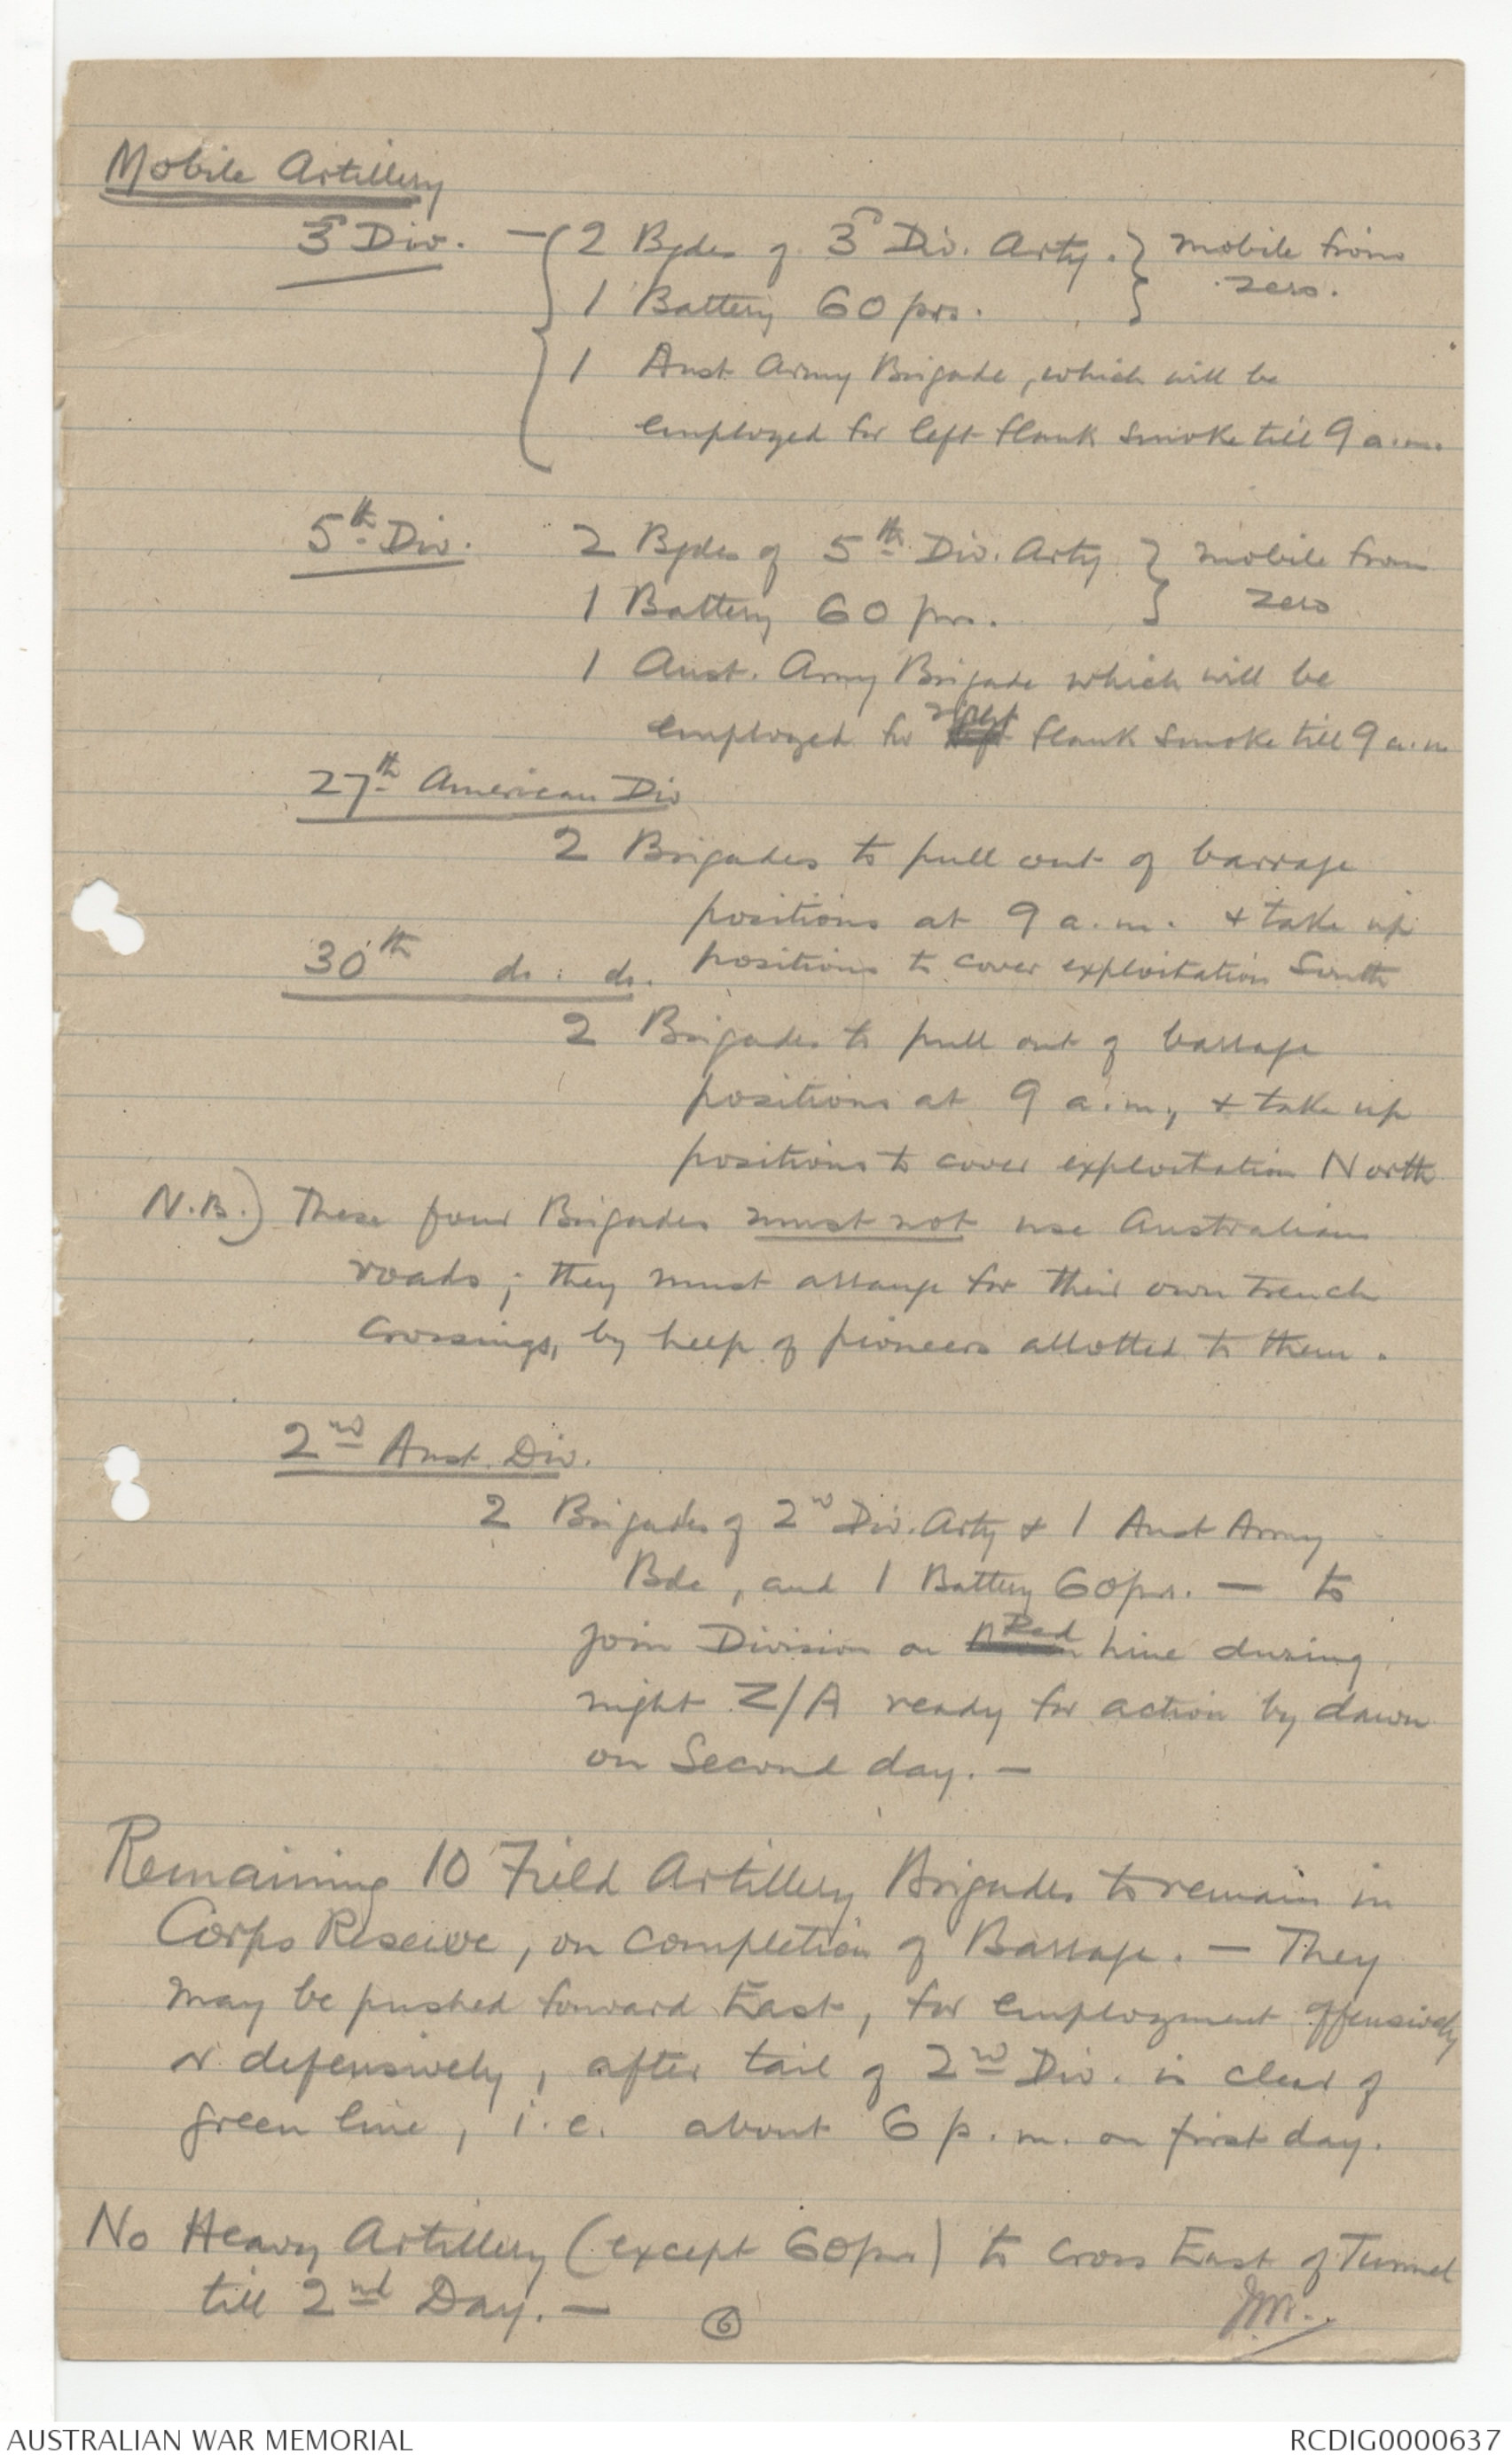 Mobile Artillery
3rd Div. — 2 Bgdes of 3rd Div. Arty. } mobile from
1 Battery 60 prs. } zero.
1 Aust Army Brigade, which will be
employed for left flank smoke till 9 a.m.
5th Div. 2 Bgdes of 5th Div. Arty } mobile from
1 Battery 60 prs. } zero
1 Aust. Army Brigade which will be
employed for right flank smoke till 9 a.m
27th American Div
2 Brigades to pull out of barrage
positions at 9 a.m. & take up
positions to cover exploitation South
30th do: do.
2 Brigades to pull out of barrage
positions at 9 a.m., & take up
positions to cover exploitation North
N.B.) These four Brigades must not use Australian
roads; they must arrange for their own trench
crossings, by help of pioneers allotted to them.
2nd Aust. Div.
2 Brigades of 2nd Div. Arty & 1 Aust Army
Bde, and 1 Battery 60prs. — to
join Division on Red Line during
night Z/A ready for action by dawn
on Second day. —
Remaining 10 Field Artillery Brigades to remain in
Corps Reserve, on completion of Barrage. — They
may be pushed forward East, for employment offensively
or defensively, after tail of 2nd Div. is clear of
green line, i.e. about 6 p.m. on first day.
No Heavy Artillery (except 60prs) to cross East of Tunnel
till 2nd Day. —
6
JM.
AUSTRALIAN WAR MEMORIAL
RCDIG0000637